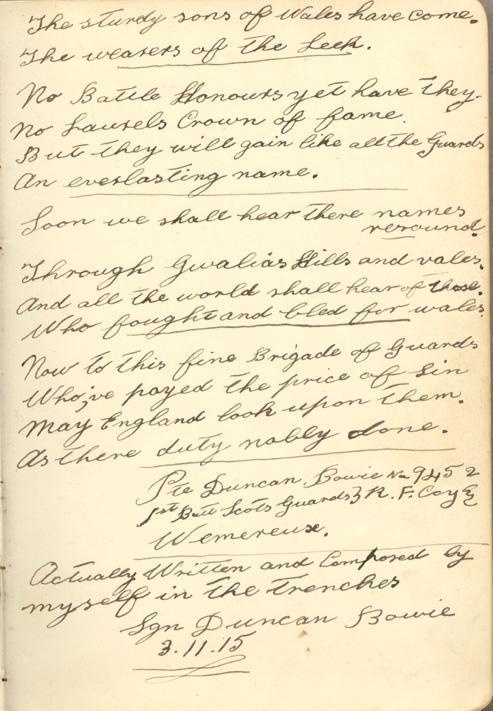 The sturdy sons of Wales have come.
The wearers of the Leek.
No Battle Honours yet have they.
No Laurels Crown of fame.
But they will gain like all the Guards
An everlasting name.
Soon we shall hear there names
resound.
Through Gwalias Hills and vales.
And all the world shall hear of those.
Who fought and bled for wales.
Now to this fine Brigade of Guards
Who,ve payed the price of Sin
May England look upon them.
As there duty nobly done.
Pte Duncan Bowie No 9452
1st Batt Scots Guards R. F. Coy
Wemereux.
Actually Written and Composed by
myself in the trenches
Sgn Duncan Bowie
3.11.15